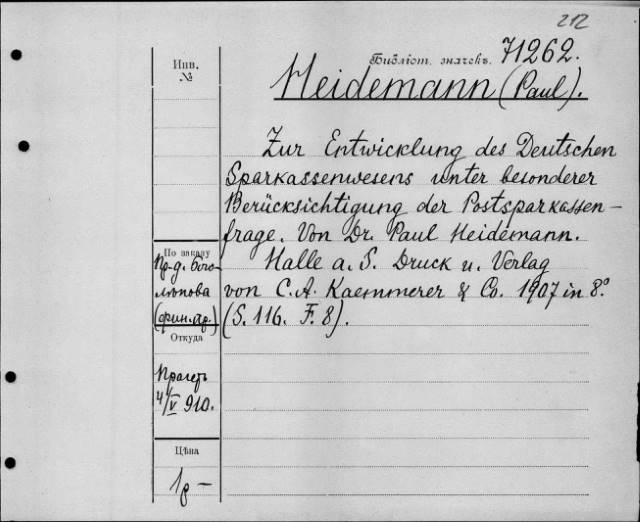 212
Инв.
№
Библіот. значекъ. 71262.
Heidemann (Paul).
Zur Entwicklung des Deutschen
Sparkassenwesens unter besonderer
Berücksichtigung der Postsparkassen-
frage. Von Dr. Paul Heidemann.
Halle a. S. Druck u. Verlag
von C. A. Kaemmerer & Co. 1907 in 8.º
(S. 116. F. 8).
По заказу
Пр-д. Бого-
лѣпова
(фин. пр.)
Откуда
Прагеръ
4/V 910.
Цѣна
1р –